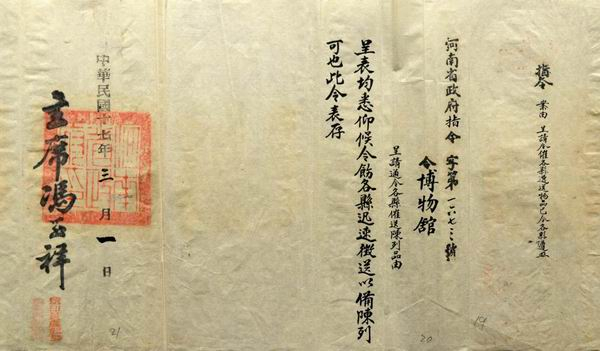 指令 案由 呈請令催各縣送物品已令各縣遵
河南省政府指令 字第一六七三號
令博物館
呈請通令各縣催送陳列品由
呈表均悉仰候令飭各縣迅速徵送以備陳列
可也此令表存
中華民國十七年三月一日
主席馮玉祥
19
20
21